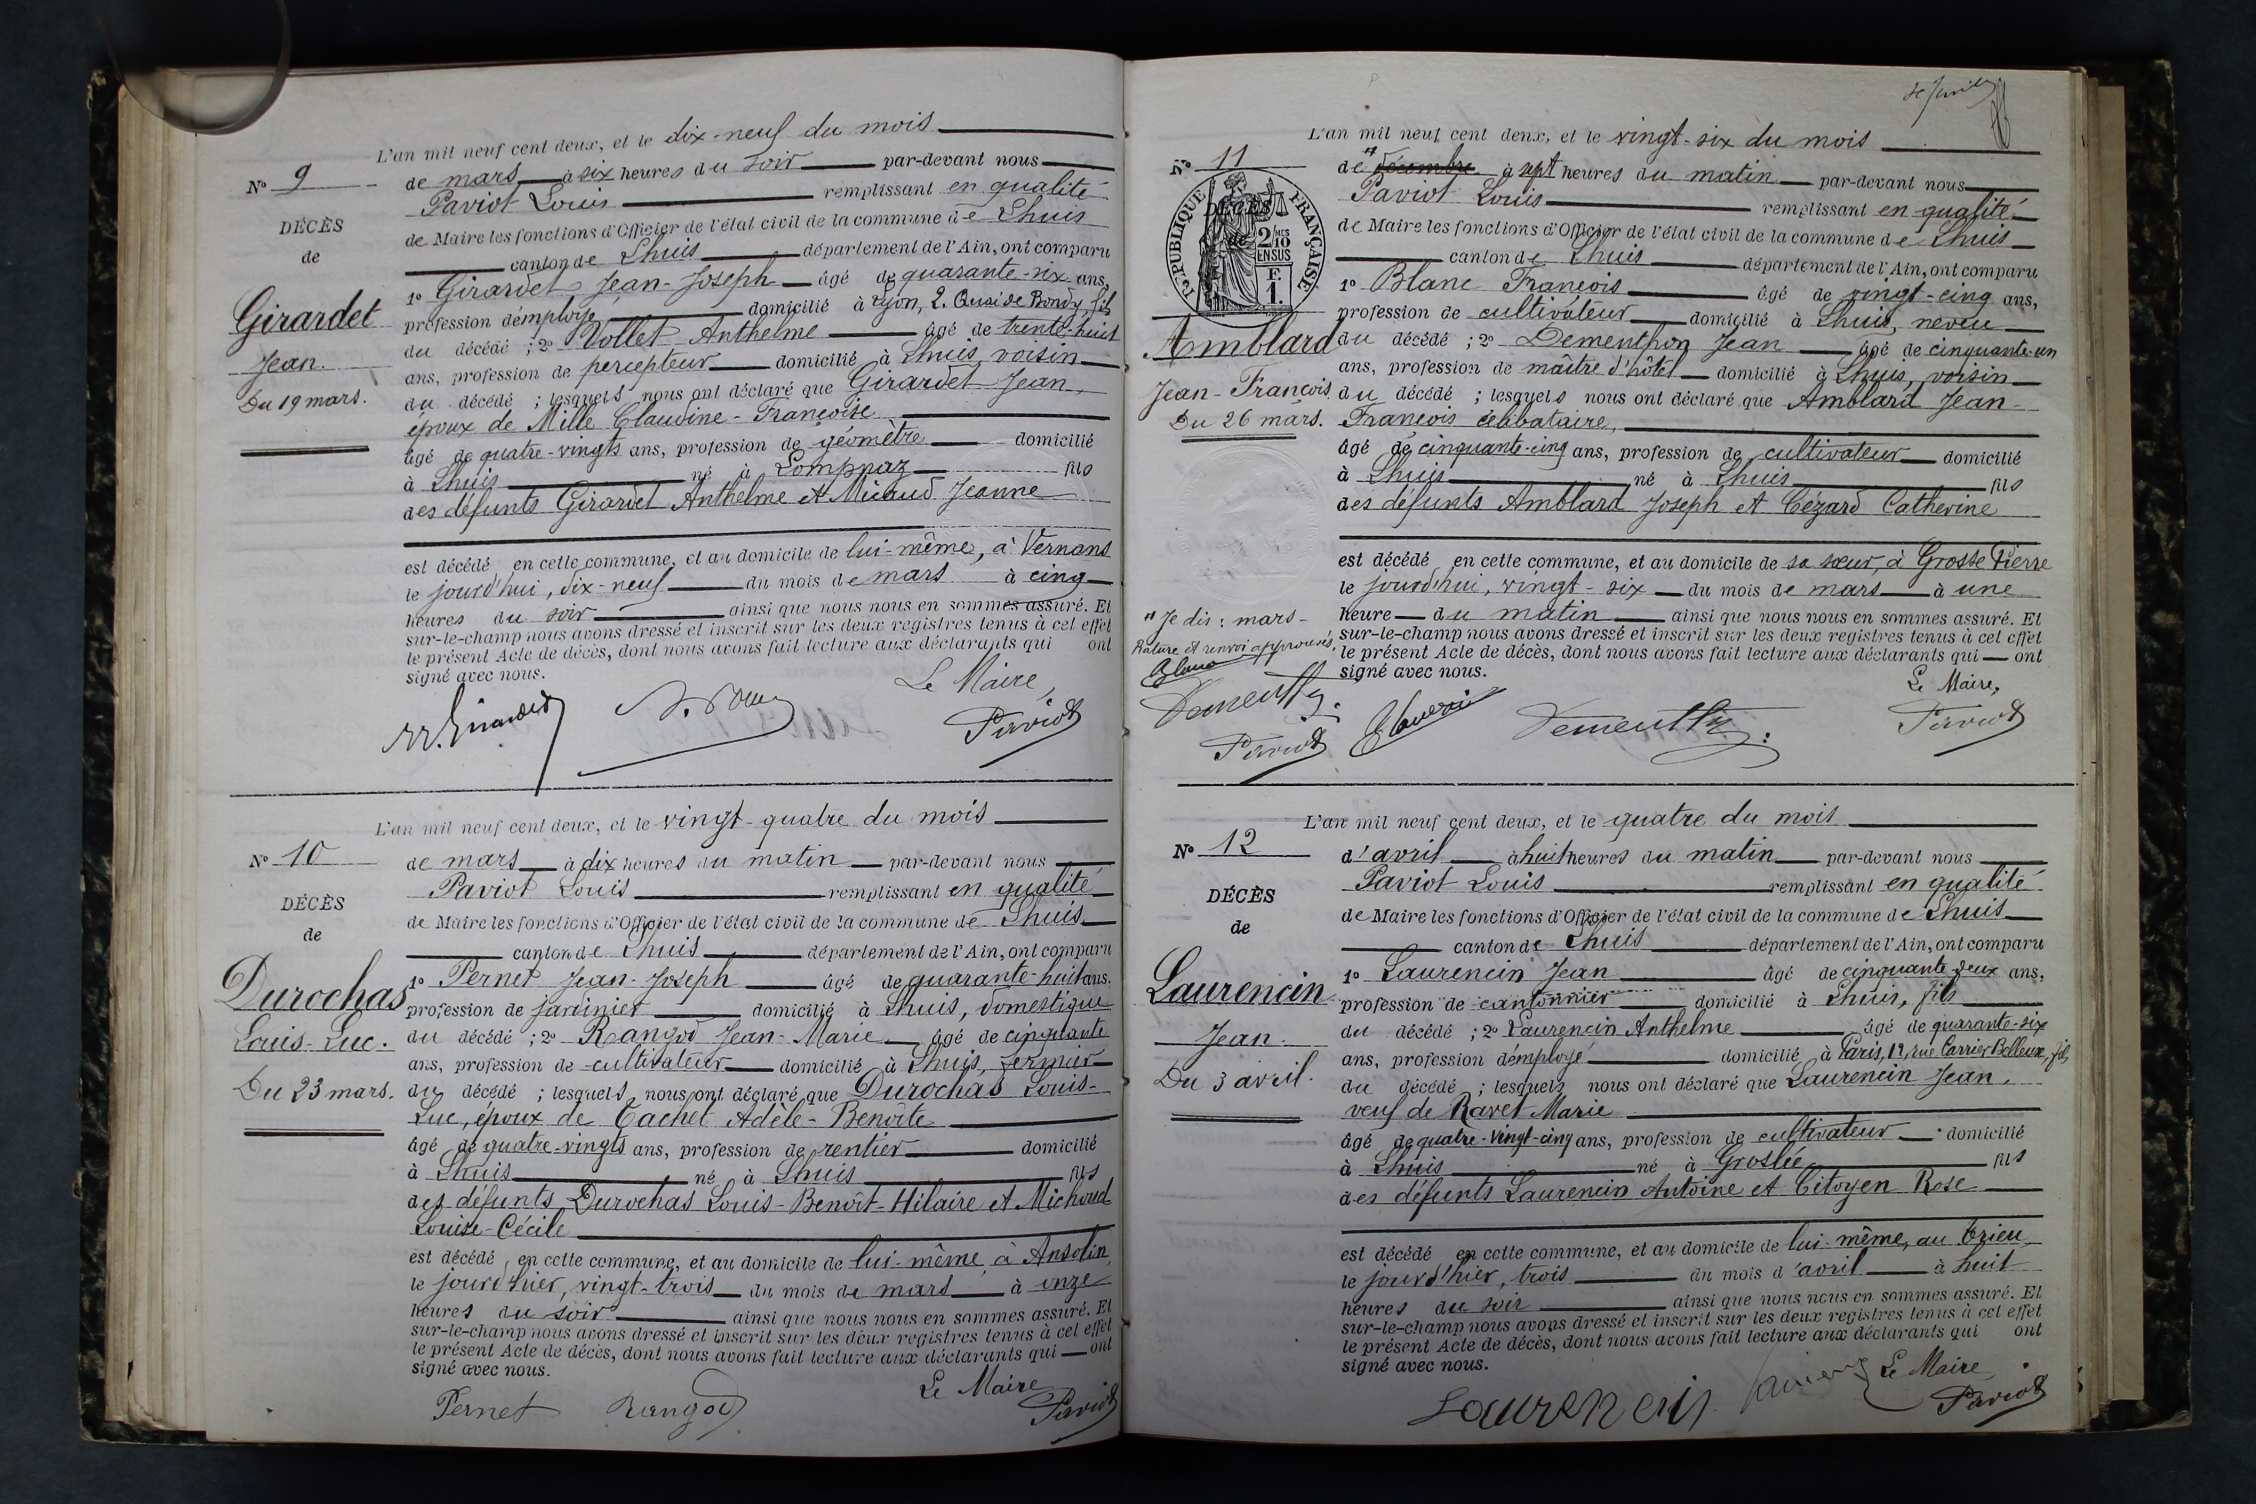 L'an mil neuf cent deux, et le dix-neuf du mois
N° 9
de mars à six heures du soir par-devant nous
Paviot Louis remplissant en qualité
DÉCÈS
de Maire les fonctions d'Officier de l'état civil de la commune de Lhuis
de
canton de Lhuis département de l'Ain, ont comparu
1° Girardet Jean-Joseph âgé de quarante-six ans,
Girardet
profession d'employé domicilié à Lyon, 2. Quai de Bondy, fils
du décédé ; 2° Vollet Anthelme âgé de trente-huit
Jean.
ans, profession de percepteur domicilié à Lhuis, voisin
Du 19 mars.
du décédé ; lesquels nous ont déclaré que Girardet Jean,
époux de Mille Claudine-Françoise
âgé de quatre-vingts ans, profession de géomètre domicilié
à Lhuis né à Lompnaz fils
des défunts Girardet Anthelme et Micaud Jeanne
est décédé en cette commune, et au domicile de lui-même, à Vernans
le jourd'hui, dix-neuf du mois de mars à cinq
heures du soir ainsi que nous nous en sommes assuré. Et
sur-le-champ nous avons dressé et inscrit sur les deux registres tenus à cet effet
le présent Acte de décès, dont nous avons fait lecture aux déclarants qui ont
signé avec nous.
Le Maire,
Girardet
Paviot
L'an mil neuf cent deux, et le vingt-quatre du mois
N° 10
de mars à dix heures du matin par-devant nous
Paviot Louis remplissant en qualité
DÉCÈS
de Maire les fonctions d'Officier de l'état civil de la commune de Lhuis
de
canton de Lhuis département de l'Ain, ont comparu
1° Pernet Jean-Joseph âgé de quarante-huit ans.
Durochas
profession de jardinier domicilié à Lhuis, domestique
Louis-Luc.
du décédé ; 2° Rangod Jean-Marie âgé de cinquante
ans, profession de cultivateur domicilié à Lhuis, fermier
Du 23 mars.
du décédé ; lesquels nous ont déclaré que Durochas Louis-
Luc, époux de Cachet Adèle-Benoîte
âgé de quatre-vingts ans, profession de rentier domicilié
à Lhuis né à Lhuis fils
des défunts Durochas Louis-Benoît-Hilaire et Michoud
Louise-Cécile
est décédé en cette commune, et au domicile de lui-même, à Ansolin,
le jourd'hier, vingt-trois du mois de mars à onze
heures du soir ainsi que nous nous en sommes assuré. Et
sur-le-champ nous avons dressé et inscrit sur les deux registres tenus à cet effet
le présent Acte de décès, dont nous avons fait lecture aux déclarants qui ont
signé avec nous.
Le Maire
Pernet Rangod Paviot
L'an mil neuf cent deux, et le vingt-six du mois
N° 11
de décembre à sept heures du matin par-devant nous
Paviot Louis remplissant en qualité
RÉPUBLIQUE FRANÇAISE
DÉCÈS
de
2/10 EN SUS
F. 1.
de Maire les fonctions d'Officier de l'état civil de la commune de Lhuis
canton de Lhuis département de l'Ain, ont comparu
1° Blanc François âgé de vingt-cinq ans,
profession de cultivateur domicilié à Lhuis, neveu
Amblard
du décédé ; 2° Dementhon Jean âgé de cinquante-un
ans, profession de maître d'hôtel domicilié à Lhuis, voisin
Jean-François
du décédé ; lesquels nous ont déclaré que Amblard Jean-
Du 26 mars.
François célibataire,
âgé de cinquante-cinq ans, profession de cultivateur domicilié
à Lhuis né à Lhuis fils
des défunts Amblard Joseph et Cézard Catherine
est décédé en cette commune, et au domicile de sa sœur, à Grosse Pierre
le jourd'hui, vingt-six du mois de mars à une
heure du matin ainsi que nous nous en sommes assuré. Et
" Je dis : mars -
Rature et renvoi approuvés,
sur-le-champ nous avons dressé et inscrit sur les deux registres tenus à cet effet
le présent Acte de décès, dont nous avons fait lecture aux déclarants qui ont
signé avec nous.
Le Maire,
Paviot
Paviot
L'an mil neuf cent deux, et le quatre du mois
N° 12
d'avril à huit heures du matin par-devant nous
Paviot Louis remplissant en qualité
DÉCÈS
de Maire les fonctions d'Officier de l'état civil de la commune de Lhuis
de
canton de Lhuis département de l'Ain, ont comparu
1° Laurencin Jean âgé de cinquante-deux ans,
Laurencin
profession de cantonnier domicilié à Lhuis, fils
du décédé ; 2° Laurencin Anthelme âgé de quarante-six
Jean.
ans, profession d'employé domicilié à Paris, 12, rue Carrier Belleuse, fils
Du 3 avril.
du décédé ; lesquels nous ont déclaré que Laurencin Jean,
veuf de Ravet Marie
âgé de quatre-vingt-cinq ans, profession de cultivateur domicilié
à Lhuis né à Groslée fils
des défunts Laurencin Antoine et Citoyen Rose
est décédé en cette commune, et au domicile de lui-même, au Crieu,
le jourd'hier, trois du mois d'avril à huit
heures du soir ainsi que nous nous en sommes assuré. Et
sur-le-champ nous avons dressé et inscrit sur les deux registres tenus à cet effet
le présent Acte de décès, dont nous avons fait lecture aux déclarants qui ont
signé avec nous.
Le Maire
Laurencin Paviot